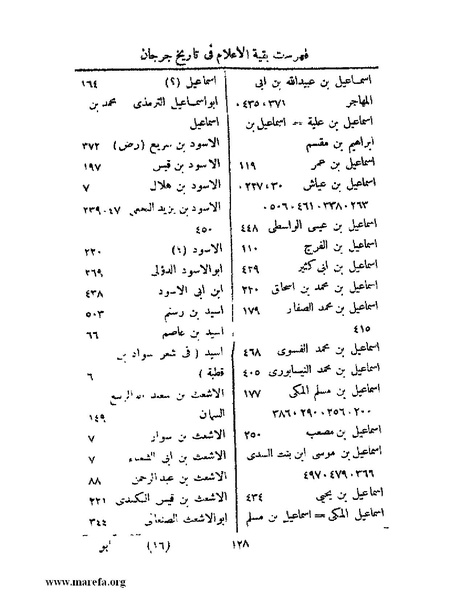 فهرست بقية الاعلام فى تاريخ جرجان
اسماعيل بن عبيدالله بن ابى
المهاجر ٣٧١، ٤٣٥،
اسماعيل بن علية = اسماعيل بن
ابراهيم بن مقسم
اسماعيل بن عمر ١١٩
اسماعيل بن عياش ٣٠، ٢٣٧،
٢٦٣، ٣٣٨، ٤٦١، ٥٠٦،
اسماعيل بن عيسى الواسطى ٤٤٨
اسماعيل بن الفرج ٤١٠
اسماعيل بن ابى كثير ٤٢٩
اسماعيل بن محمد بن اسحاق ٢٢٠
اسماعيل بن محمد الصفار ١٧٩
٤١٥
اسماعيل بن محمد الفسوى ٤٦٨
اسماعيل بن محمد النيسابورى ٤٠٥
اسماعيل بن مسلم المكى ١٧٧
٢٠٠، ٢٥٦، ٢٩٠، ٣٨٦
اسماعيل بن مصعب ٢٥٠
اسماعيل بن موسى ابن بنت السدى
٣٦٦، ٤٧٩، ٤٩٧
اسماعيل بن يحيى ٤٣٤
اسماعيل المكى = اسماعيل بن مسلم
اسماعيل (؟) ١٦٤
ابو اسماعيل الترمذى محمد بن
اسماعيل
الاسود بن سريع (رض) ٣٧٢
الاسود بن قيس ١٩٧
الاسود بن هلال ٧
الاسود بن يزيد النخعى ٤٧، ٢٣٩
٤٥٠
الاسود (؟) ٢٢٠
ابو الاسود الدؤلى ٢٦٩
ابن ابى الاسود ٤٣٨
اسيد بن رستم ٥٠٣
اسيد بن عاصم ٦٦
اسيد (فى شعر سواد بن
قطبة) ٦
الاشعث بن سعيد ابو الربيع
السمان ١٤٩
الاشعث بن سوار ٧
الاشعث بن ابى الشعثاء ٧
الاشعث بن عبد الرحمن ٨٨
الاشعث بن قيس الكندى ٢٢١
ابو الاشعث الصنعانى ٣٤٤
١٢٨ (١٦) ابو
www.marefa.org